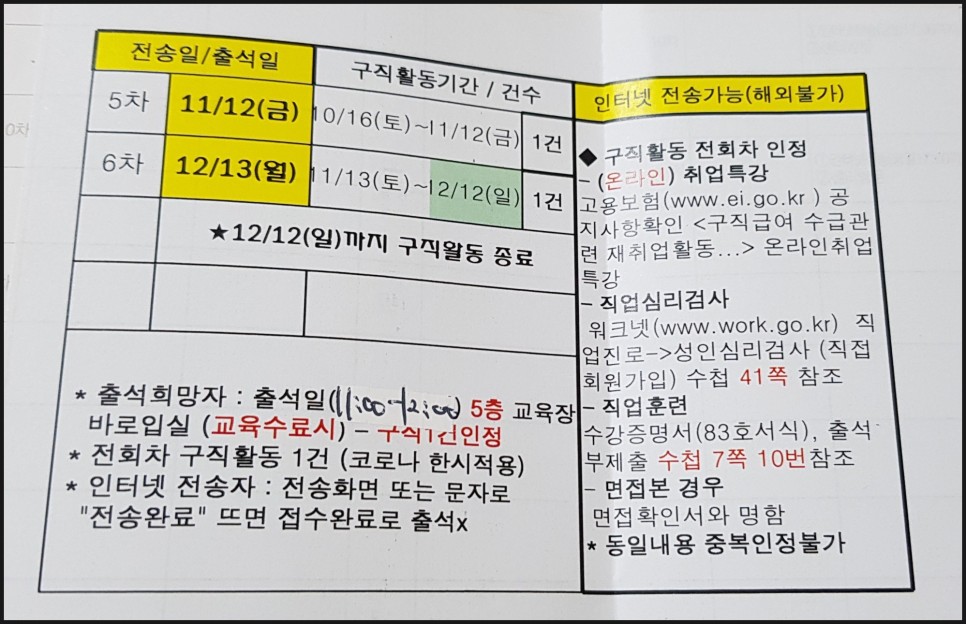 전송일/출석일
구직활동기간 / 건수
5차
11/12(금)
10/16(토)~11/12(금)
1건
6차
12/13(월)
11/13(토)~12/12(일)
1건
★12/12(일)까지 구직활동 종료
* 출석희망자 : 출석일(11:00-12:00) 5층 교육장
바로입실 (교육수료시) – 구직1건인정
* 전회차 구직활동 1건 (코로나 한시적용)
* 인터넷 전송자 : 전송화면 또는 문자로
"전송완료" 뜨면 접수완료로 출석x
인터넷 전송가능(해외불가)
◆ 구직활동 전회차 인정
– (온라인) 취업특강
고용보험(www.ei.go.kr ) 공
지사항확인 <구직급여 수급관
련 재취업활동...> 온라인취업
특강
– 직업심리검사
워크넷(www.work.go.kr) 직
업진로->성인심리검사 (직접
회원가입) 수첩 41쪽 참조
– 직업훈련
수강증명서(83호서식), 출석
부제출 수첩 7쪽 10번참조
– 면접본 경우
면접확인서와 명함
* 동일내용 중복인정불가